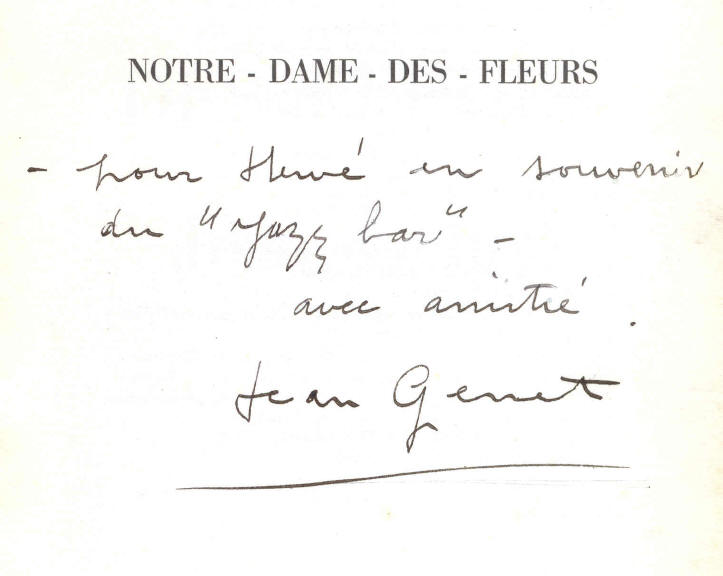 NOTRE - DAME - DES - FLEURS
- pour Hervé en souvenir
du "Jazz bar" -
avec amitié.
Jean Genet